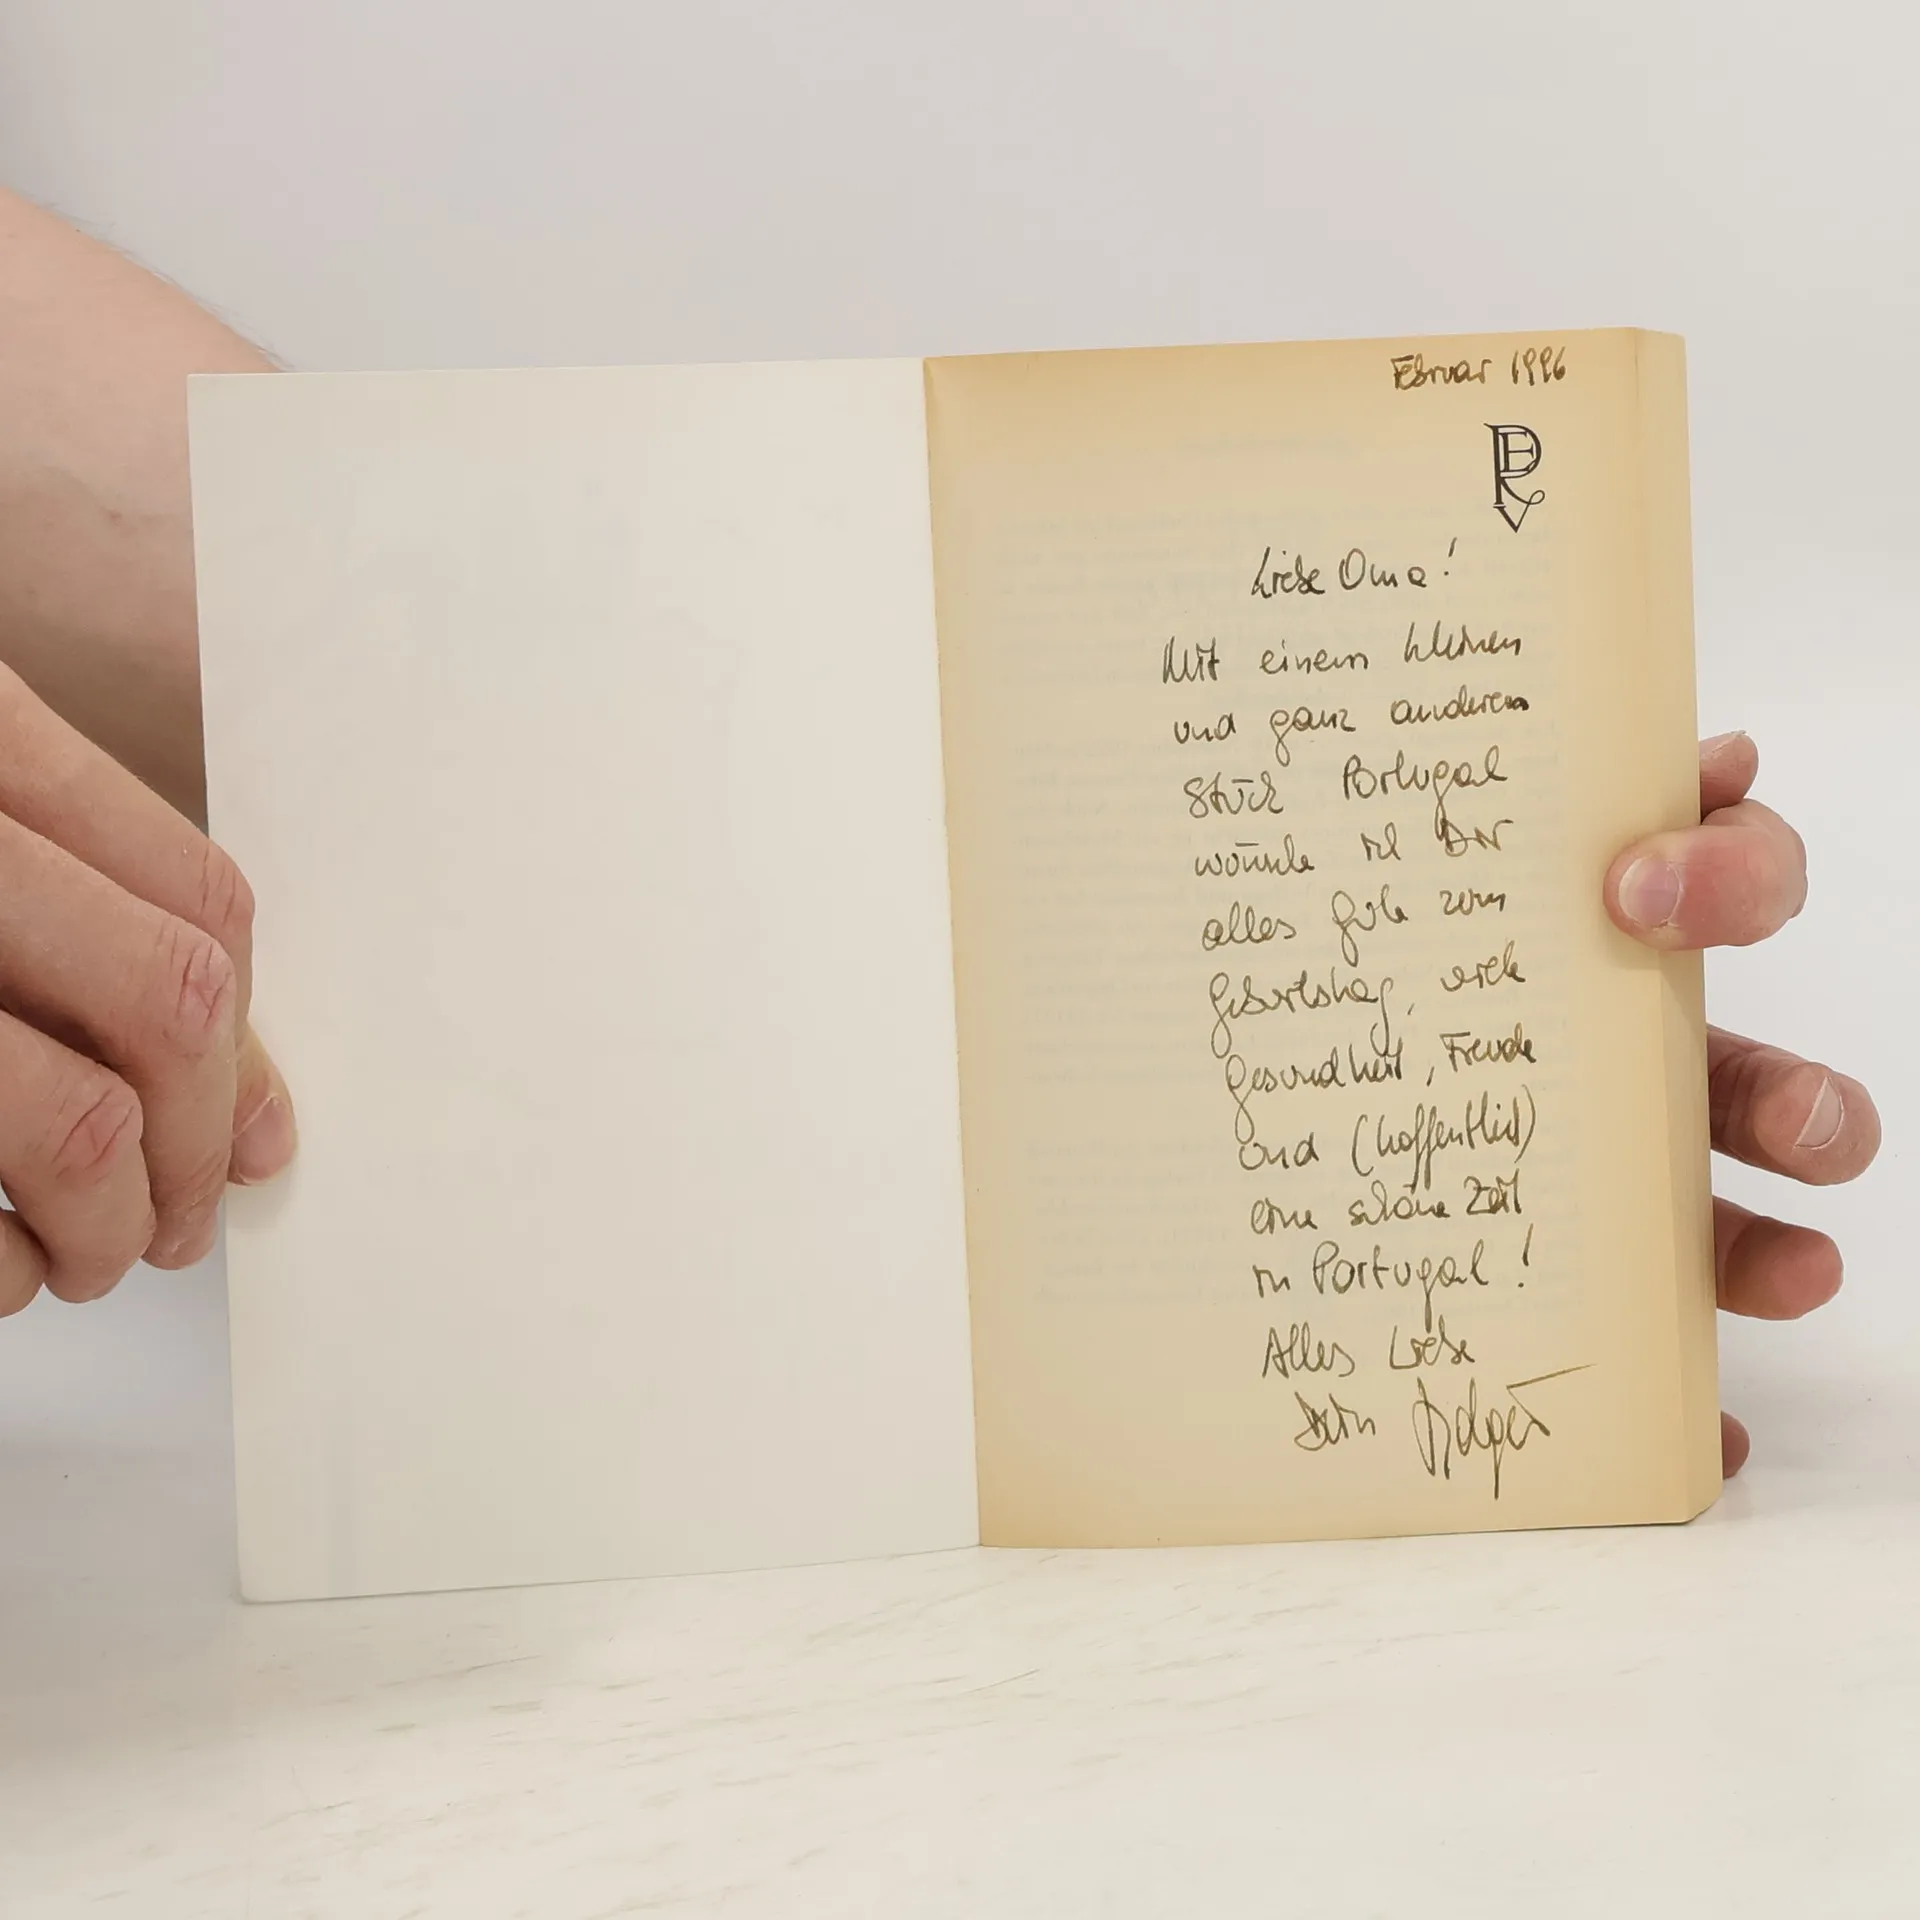 Februar 1996
PEV
Liebe Oma!
Mit einem kleinen
und ganz anderen
Stück Portugal
wünsche ich Dir
alles Gute zum
Geburtstag, viele
Gesundheit, Freude
und (hoffentlich)
eine schöne Zeit
in Portugal!
Alles Liebe
Dein